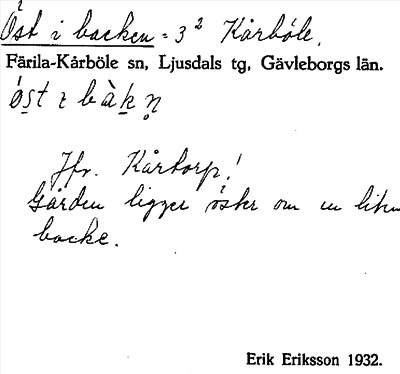 Öst i backen = 3² Kårböle.
Färila-Kårböle sn, Ljusdals tg, Gävleborgs län.
Jfr. Kårtorp!
Gården ligger öster om en liten
backe.
Erik Eriksson 1932.